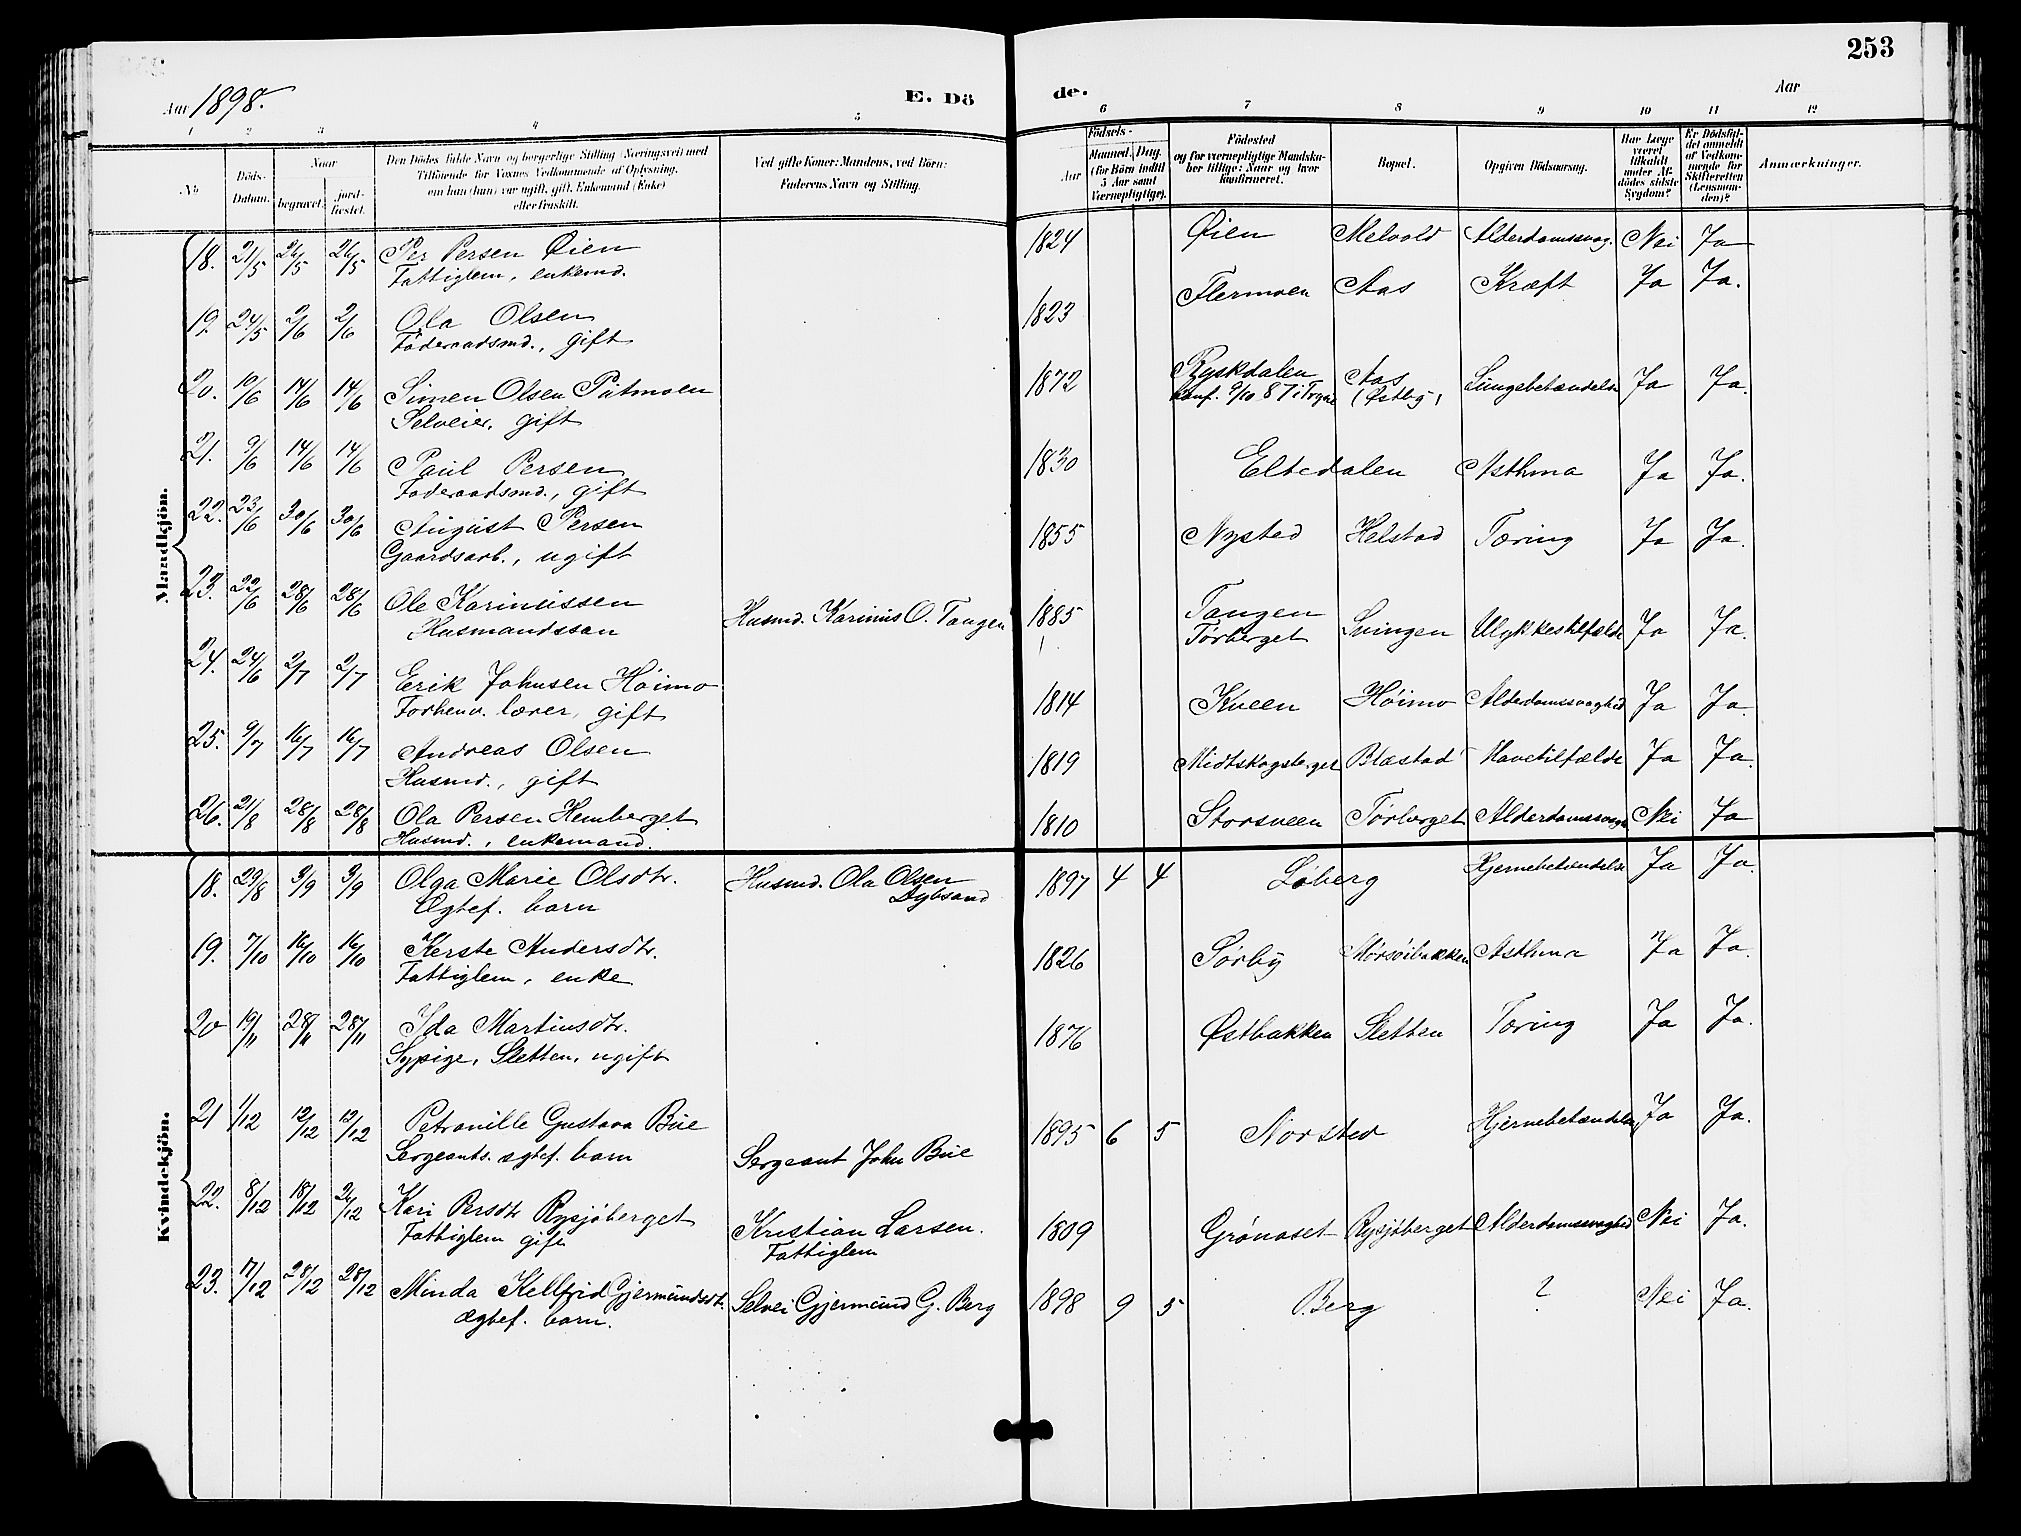 253
Aar 1898.
E. Dö
de.
Aar
1 2 3 4 5 6 7 8 9 10 11 12
No
Döds-Datum.
Naar
begravet.
jord-fæstet.
Den Dödes fulde Navn og borgerlige Stilling (Næringsvei) med
Tilföiende for Voxnes Vedkommende af Oplysning,
om han (hun) var ugift, gift, Enkemand (Enke)
eller fraskilt.
Ved gifte Koner: Mandens, ved Börn:
Faderens Navn og Stilling.
Födsels-
Aar
Maaned. Dag.
(for Börn indtil
5 Aar samt
Værnepligtige).
Födested
og for værnepligtige Mandska-
ber tillige: Naar og hvor
konfirmeret.
Bopæl.
Opgiven Dödsaarsag.
Har Læge
været
tilkaldt
under Af-
dödes sidste
Sygdom?
Er Dödsfal-
det anmeldt
af Vedkom-
mende for
Skifteretten
(Lensman-
den)?
Anmærkninger.
Mandkjön.
18. 21/5 26/5 26/5 Per Persen Öien 1824 Öien Melvold Alderdomssvag. Nei Ja
Fattiglem, enkemd.
19. 24/5 2/6 2/6 Ola Olsen 1823 Flermoen Aas Kræft Ja Ja.
Föderaadsmd., gift
20. 10/6 14/6 14/6 Simen Olsen Patmoen 1872 Ryskdalen Aas Lungebetændelse Ja Ja.
Selveier, gift konf. 9/10 87 i Trysil (Østby)
21. 9/6 14/6 14/6 Paul Persen 1830 Eltedalen Asthma Ja Ja.
Foderaadsmd., gift
22. 23/6 30/6 30/6 August Persen 1855 Nysted Helstad Tæring Ja Ja.
Gaardsarb., ugift
23. 22/6 28/6 28/6 Ole Karinussen Husmd. Karinus O. Tangen 1885 Tangen Svingen Ulykkestilfælde Ja Ja.
Husmandssøn Törberget
24. 24/6 2/7 2/7 Erik Johnsen Höimo 1814 Kveen Höimo Alderdomssvaghed Ja Ja.
Forhenv. lærer, gift
25. 9/7 16/7 16/7 Andreas Olsen 1819 Midtskogsberget Blæstad Mavetilfælde Ja Ja.
Husmd., gift
26. 21/8 28/8 28/8 Ola Persen Hemberget 1810 Storsveen Törberget Alderdomssvagh Nei Ja
Husmd., enkemand.
Kvindekjön.
18. 29/8 3/9 3/9 Olga Marie Olsdtr. Husmd. Ola Olsen 1897 4 4 Löberg Hjernebetændelse Ja Ja.
Ægtef. barn Dybsand
19. 7/10 16/10 16/10 Kerste Andersdtr. 1826 Sörby Mörsöibakken Asthma Ja Ja.
Fattiglem, enke
20 19/11 28/11 28/11 Ida Martinsdtr. 1876 Østbakken Sletten Tæring Ja Ja.
Sypige, Sletten, ugift
21 1/12 12/12 12/12 Petronille Gustava Bue 1895 6 5 Norsted Hjernebetændelse Ja Ja.
Sergeants. ægtef. barn Sergeant John Bue
22. 8/12 18/12 24/12 Kari Persdtr Rysjöberget Kristian Larsen. 1809 Grönoset Rysjöberget Alderdomssvaghed Nei Ja.
Fattiglem gift Fattiglem
23. 17/12 28/12 28/12 Minda Kellfrid Gjermundsdt. Selvei Gjermund G. Berg 1898 9 5 Berg ? Nei Ja.
Ægtef. barn.